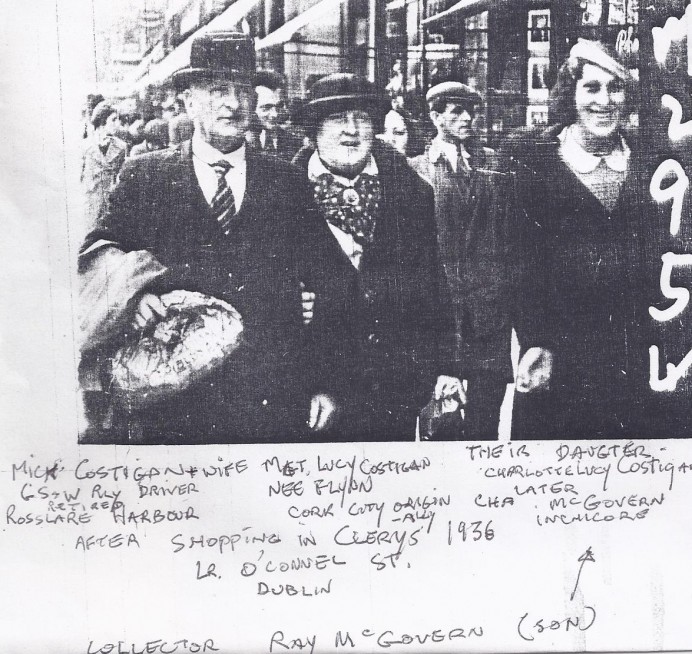 2
9
5
MICK COSTIGAN + WIFE
GS+W RLY DRIVER
RETIRED
ROSSLARE HARBOUR
MGT. LUCY COSTIGAN
NEE FLYNN
CORK CITY ORIGIN
-ALLY
THEIR DAUGTER -
CHARLOTTE LUCY COSTIGA
LATER
CHA MCGOVERN
INCHICORE
AFTER SHOPPING IN CLERYS 1936
LR. O'CONNEL ST.
DUBLIN
COLLECTOR RAY McGOVERN (SON)